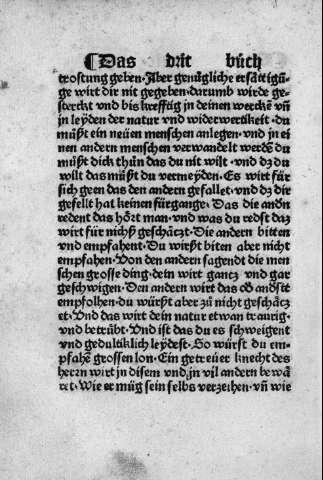 ¶Das drit büch
trostung geben·Aber genügliche ersättigũ⸗
ge wirt dir nit gegeben·darumb wirde ge⸗
sterckt vnd bis krefftig in deinen werckẽ vñ
jn leyden der natur vnd widerwertikeit·du
müst ein neüen menschen anlegen·vnd jn ei
nen andern menschen verwandelt werdẽ du
müst dick thün das du nit wilt·vnd dz du
wilt das müst du vermeyden·Es wirt für
sich geen das den andern gefallet·vnd dz dir
gefelt hat keinen fürgange·Das die andn
redent das hört man·vnd was du redst daz
wirt für nichs geschäczt·Die andern bitten
vnd empfahent·Du wirst biten aber nicht
empfahen·Von den andern sagendt die men
schen grosse ding·dein wirt gantz vnd gar
geschwigen·Den andern wirt das
empfolhen·du würst aber zü nicht geschäcz
et·Vnd das wirt dein natur etwan traurig·
vnd betrübt·Vnd ist das du es schweigent
vnd gedultiklich leydest·So würst du em⸗
pfahẽ grossen lon·Ein getreüer knecht des
herrn wirt jn disem vnd jn vil andern bewä
ret·Wie er müg sein selbs verzeihen·vñ wie